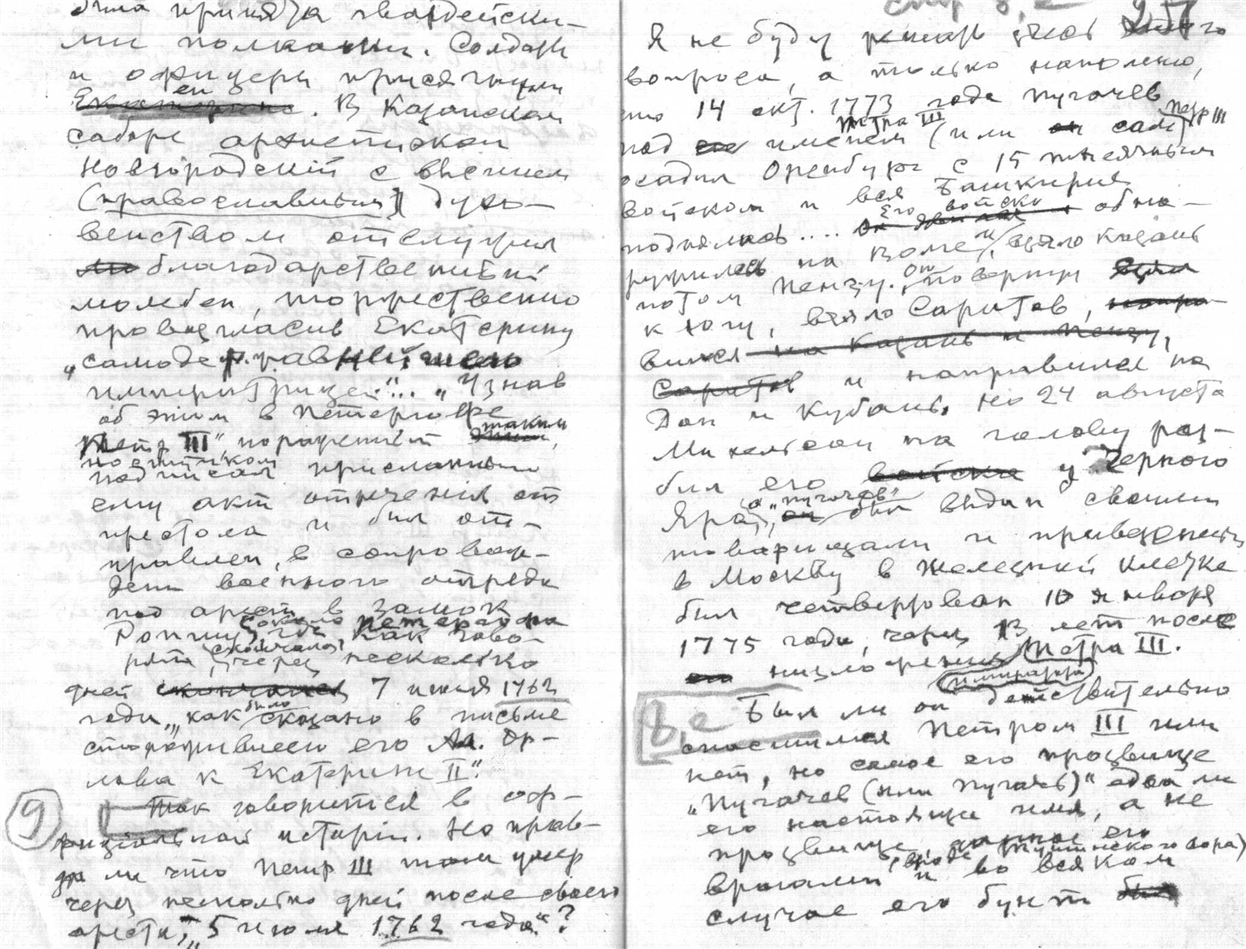 была принята гвардейски-
ми полками. Солдаты
и офицеры присягнули
ей. В Казанском
соборе архиепископ
новгородский с высшим
(православным) духо-
венством отслужил
благодарственный
молебен, торжественно
провозгласив Екатерину
"самодержавнейшею
императрицей"... "Узнав
об этом в Петергофе
Петр III" пораженный таким
поступком
подписал присланный
ему акт отречения от
престола и был от-
правлен, в сопровож-
дении военного отряда
под арест в замок
Ропшу, около Петергофа
где, как гово-
рят, скончался через несколько
дней 7 июля 1762
года, "как было сказано в письме
сторожившего его Ал. Ор-
лова к Екатерине II".
9 Так говорится в оф-
фициальной истории. Но прав-
да ли что Петр III там умер
через несколько дней после своего
ареста, "5 июля 1762 года"?
стр 8, е
Я не буду решать здесь этого
вопроса, а только напомню,
что 14 окт. 1773 года Пугачев
под именем Петра III (или сам Петр III)
осадил Оренбург с 15 тысячным
войском и вся Башкирия
поднялась.... Его войско обна-
ружилось на Волге и взяло Казань
потом Пензу. Он повернул
к югу, взяло Саратов,
и направился на
Дон и Кубань, но 24 августа
Михельсон на голову раз-
бил его у Черного
Яра, а "Пугачев" был выдан своими
товарищами и привезенный
в Москву в железной клетке
был четвертован 10 января
1775 года, через 13 лет после
низложения Петра III.
8, е Был ли он действительно
императором
спасшимся Петром III или
нет, но самое его прозвище
"Пугачев (или Пугачь)" едва ли
его настоящее имя, а не
прозвище, данное его
врагами (вроде Тушинского вора)
и во всяком
случае его бунт